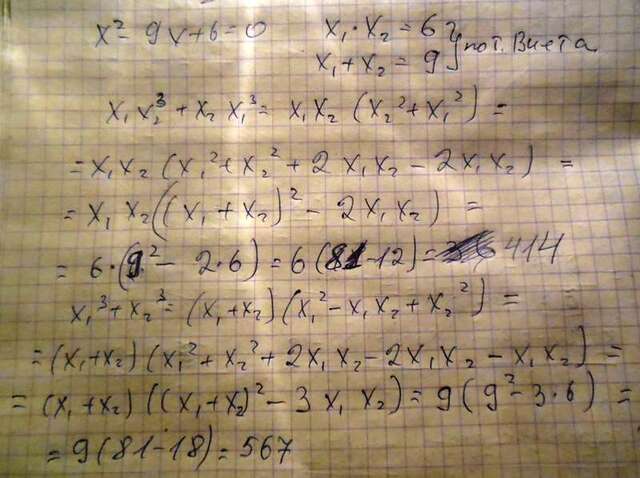 x² - 9x + 6 = 0
x₁ · x₂ = 6 } по т. Виета
x₁ + x₂ = 9
x₁ x₂³ + x₂ x₁³ = x₁ x₂ (x₂² + x₁²) =
= x₁ x₂ (x₁² + x₂² + 2 x₁ x₂ - 2 x₁ x₂) =
= x₁ x₂ ((x₁ + x₂)² - 2 x₁ x₂) =
= 6 · (9² - 2 · 6) = 6 (81 - 12) = 414
x₁³ + x₂³ = (x₁ + x₂) (x₁² - x₁ x₂ + x₂²) =
= (x₁ + x₂) (x₁² + x₂² + 2 x₁ x₂ - 2 x₁ x₂ - x₁ x₂) =
= (x₁ + x₂) ((x₁ + x₂)² - 3 x₁ x₂) = 9 (9² - 3 · 6) =
= 9 (81 - 18) = 567